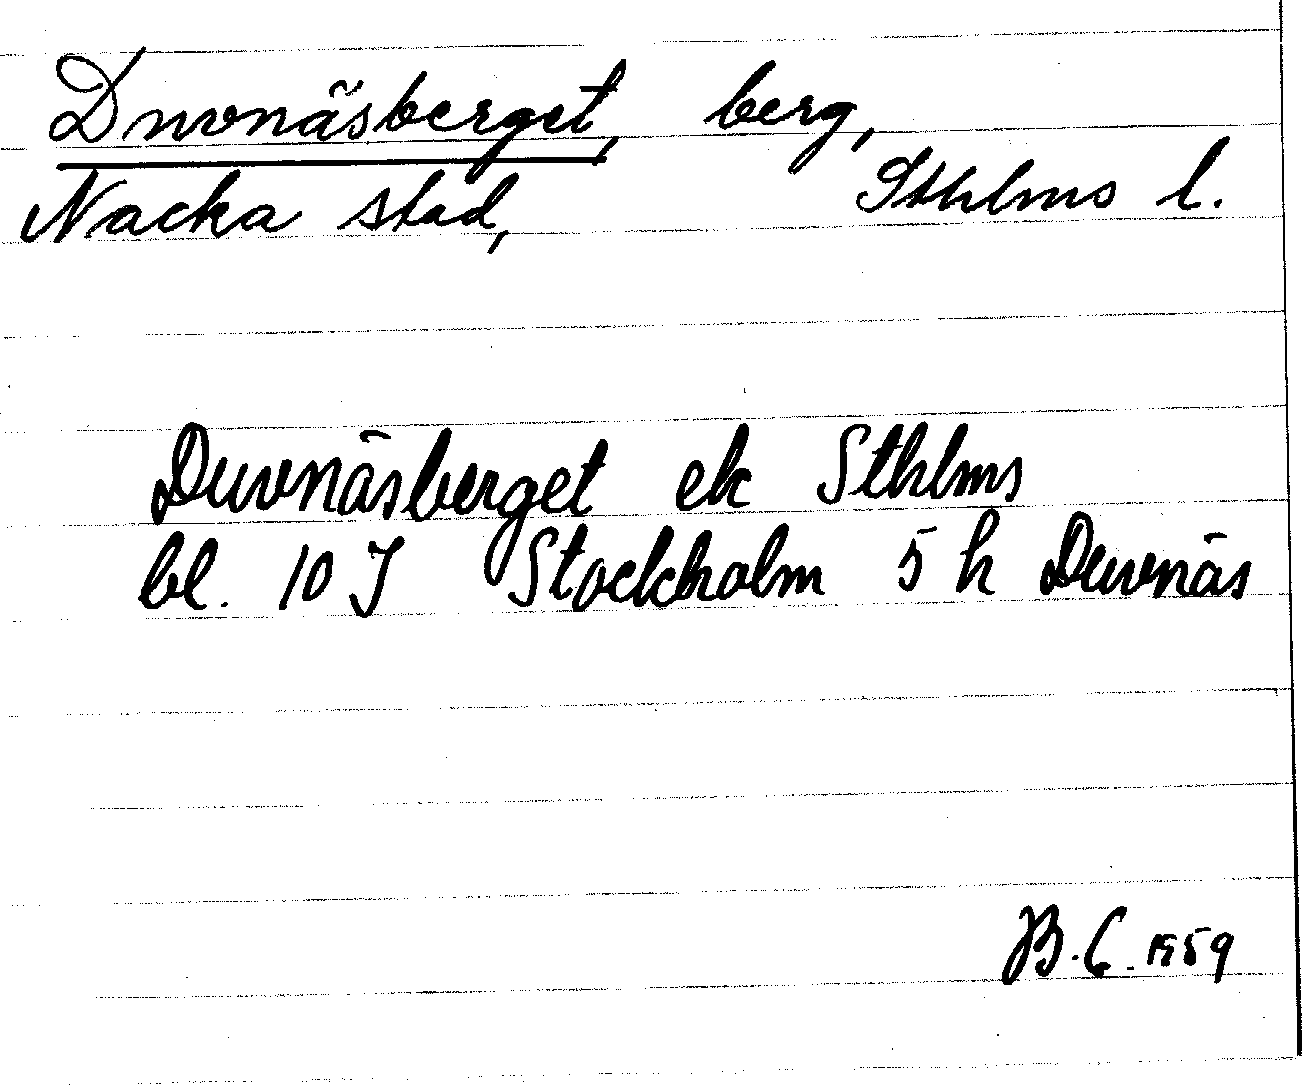 Duvnäsberget, berg,
Nacka stad, Sthlms l.
Duvnäsberget ek Sthlms
bl. 10 J Stockholm 5 h Duvnäs
B.C. 1959